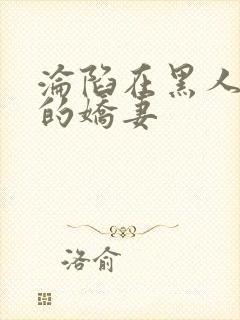 淪陷在黑人
的嬌妻
洛俞